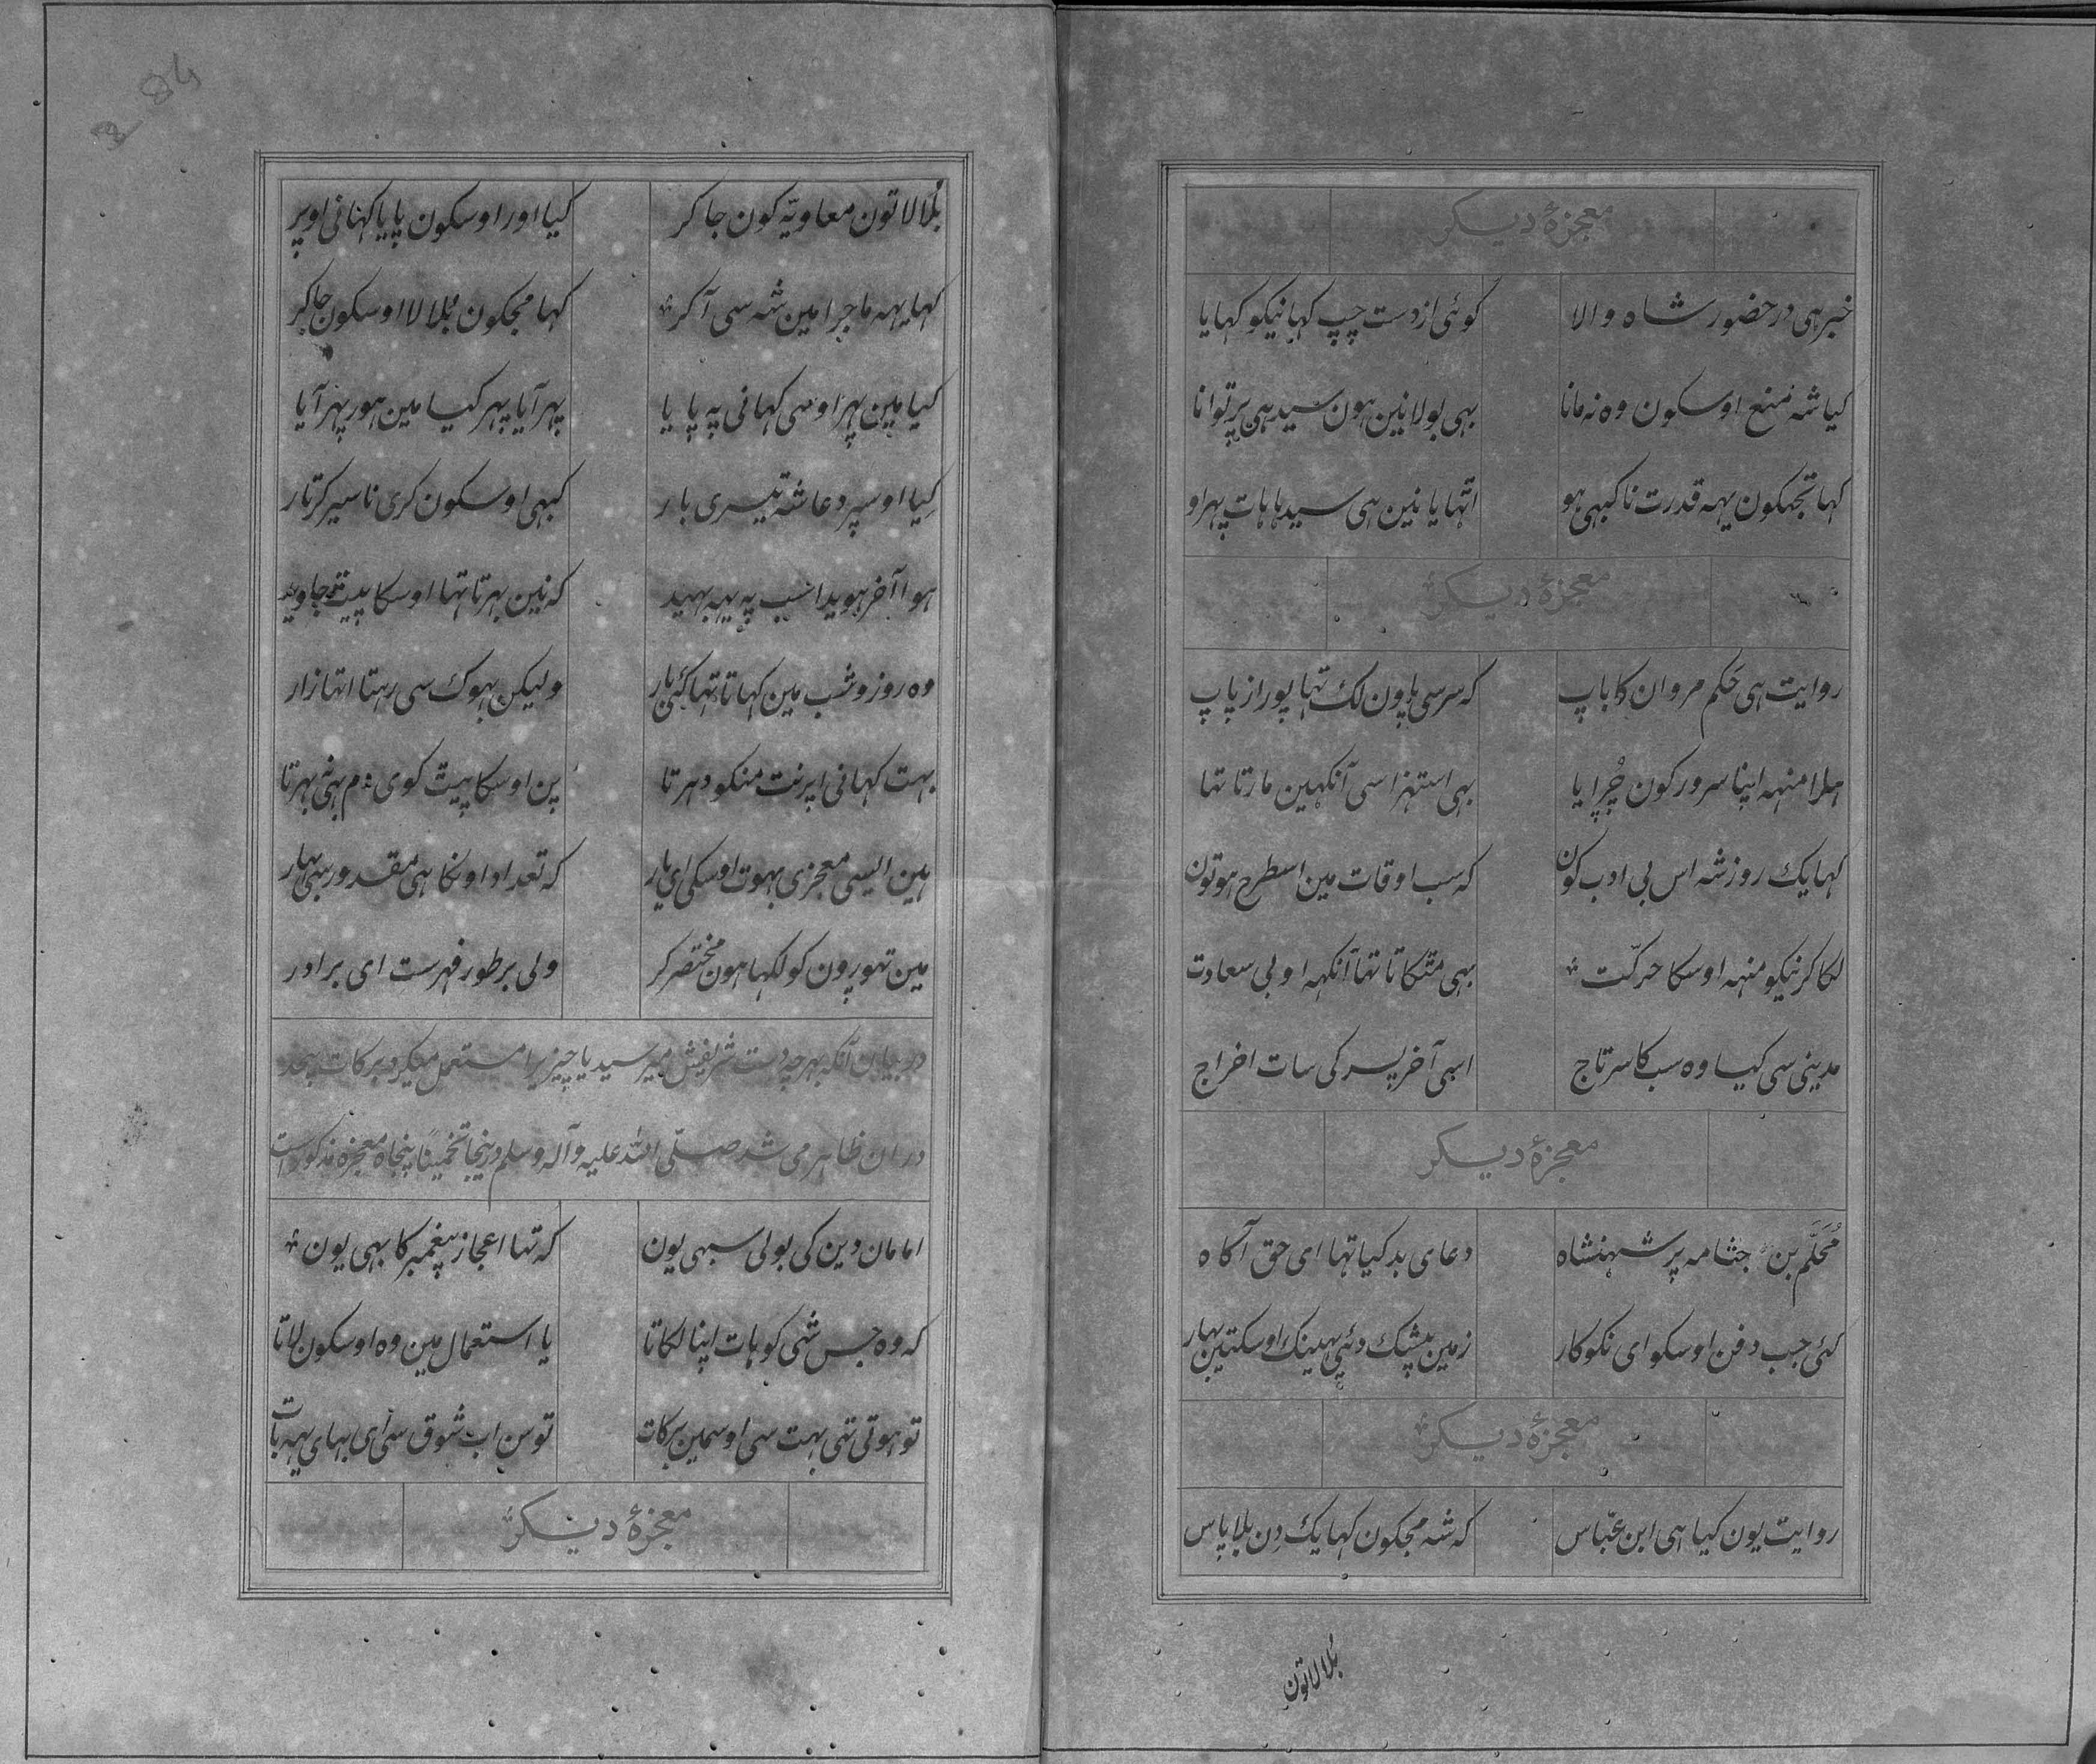 معجزۂ دیکر
خبر ہی در حضور شاہ والا کوئی از دست چپ کہانیکو کہایا
کیا شہ منع اوسکون وہ نہ مانا بہی بولا نین ہون سیدہی پر توانا
کہا تجہکون یہہ قدرت نا کبہی ہو اتہایا نین ہی سیدہا ہات پہر او
معجزۂ دیکر
روایت ہی حَکم مروان کا باپ کہ سر سی پاون لک تہا پور از پاپ
ہلا منہہ اپنا سرور کون چُڑایا بہی استہزا سی آنکہین مارتا تہا
کہا یک روز شہ اس بی ادب کون کہ سب اوقات مین اسطرح ہو تون
لکا کرنیکو منہہ اوسکا حرکت بہی متکاتا تہا آنکہہ او بی سعادت
مدینی سی کیا وہ سب کا سرتاج اسی آخر پسر کی سات اخراج
معجزۂ دیکر
مُحَلَّم بن جثامہ پر شہنشاہ دعای بد کیا تہا ای حق آکاہ
کئی جب دفن اوسکو ای نکوکار زمین بیشک دئی پہینک اوسکتین بہار
معجزۂ دیکر
روایت یون کیا ہی ابن عبّاس کہ شہ مجکون کہا یک دِن بلا پاس
بُلا لا تون
بُلا لا تون معاویّہ کون جا کر کیا اور اوسکون پایا کہانی اوپر
کہا یہہ ماجرا مین شہ سی آ کر کہا مجکون بلا لا اوسکون جا کر
کیا مین پہر اوسی کہانی پہ پایا پہر آیا پہر کیا مین ہور پہر آیا
کِیا اوسپر دعا شہ تیسری بار کبہی اوسکون کری نا سیر کرتار
ہوا آخر ہویدا سب پہ یہہ بہید کہ نین بہرتا تہا اوسکا پیت جاوید
وہ روز و شب مین کہاتا تہا کئی بار ولیکن بہوک سی رہتا اتہا زار
بہت کہانی اپر نت منکو دہرتا پن اوسکا پیت کوی دم بہی نہ بہرتا
ہین ایسی معجزی بہوت اوسکی ای یار کہ تعداد اونکا ہی مقدور سی بہار
مین تہورون کو لکہا ہون مختصر کر ولی بر طور فہرست ای برادر
در بیان آنکہ بہر چہ دست شریفش میرسید یا چیزیرا مستعمل میکرد برکات بیحد
دران ظاہر می شد صلّی اللّٰہ علیہ وآلہ وسلم درینجا تخمینًا پنجاہ معجزہ مذکور است
امامان دین کی بولی سبہی یون کہ تہا اعجاز پیغمبر کا بہی یون
کہ وہ جس شی کو ہات اپنا لکاتا یا استعمال مین وہ اوسکون لاتا
تو ہوتی تہی بہت سی اوسمین برکات تو سن اب شوق سی ای بہای یہہ بات
معجزۂ دیکر